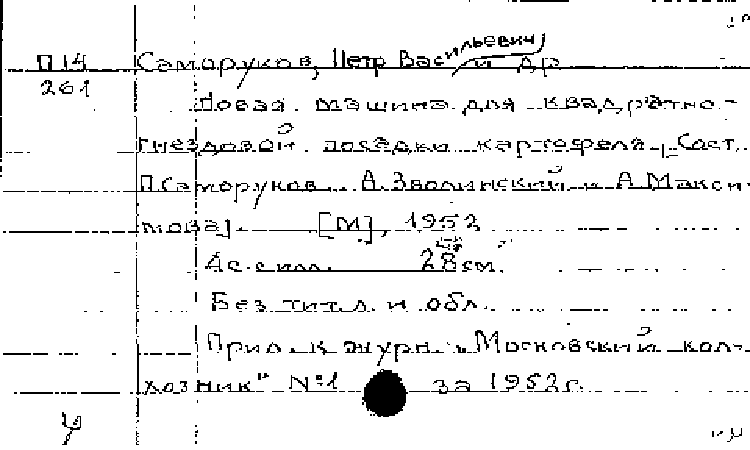 П14 Саморуков, Петр Васильевич и др
261
Новая машина для квадратно-
гнездовой посадки картофеля. [Сост.
П. Саморуков, А. Зволинский и А. Макси-
мова]. [М], 1952
4с. с илл. 28 см.
Без тит. л. и обл.
Прил. к журн. „Московский кол-
хозник" №1 за 1952г.